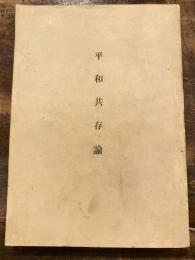 平和共存論